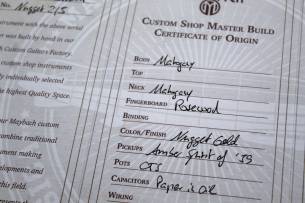 No. Nugget 215
instrument with the above serial
was built by hand in our
Custom Guitars Factory.
custom shop instruments
individually selected
the highest Quality Space.
our Maybach custom
combine traditional
ment making
elopments and
this field.
CUSTOM SHOP MASTER BUILD
CERTIFICATE OF ORIGIN
BODY Mahogany
TOP
NECK Mahogany
FINGERBOARD Rosewood
BINDING
COLOR/FINISH Nugget Gold
PICKUPS Amber Spirit of '59
POTS CTS
CAPACITORS Paper in Oil
WIRING